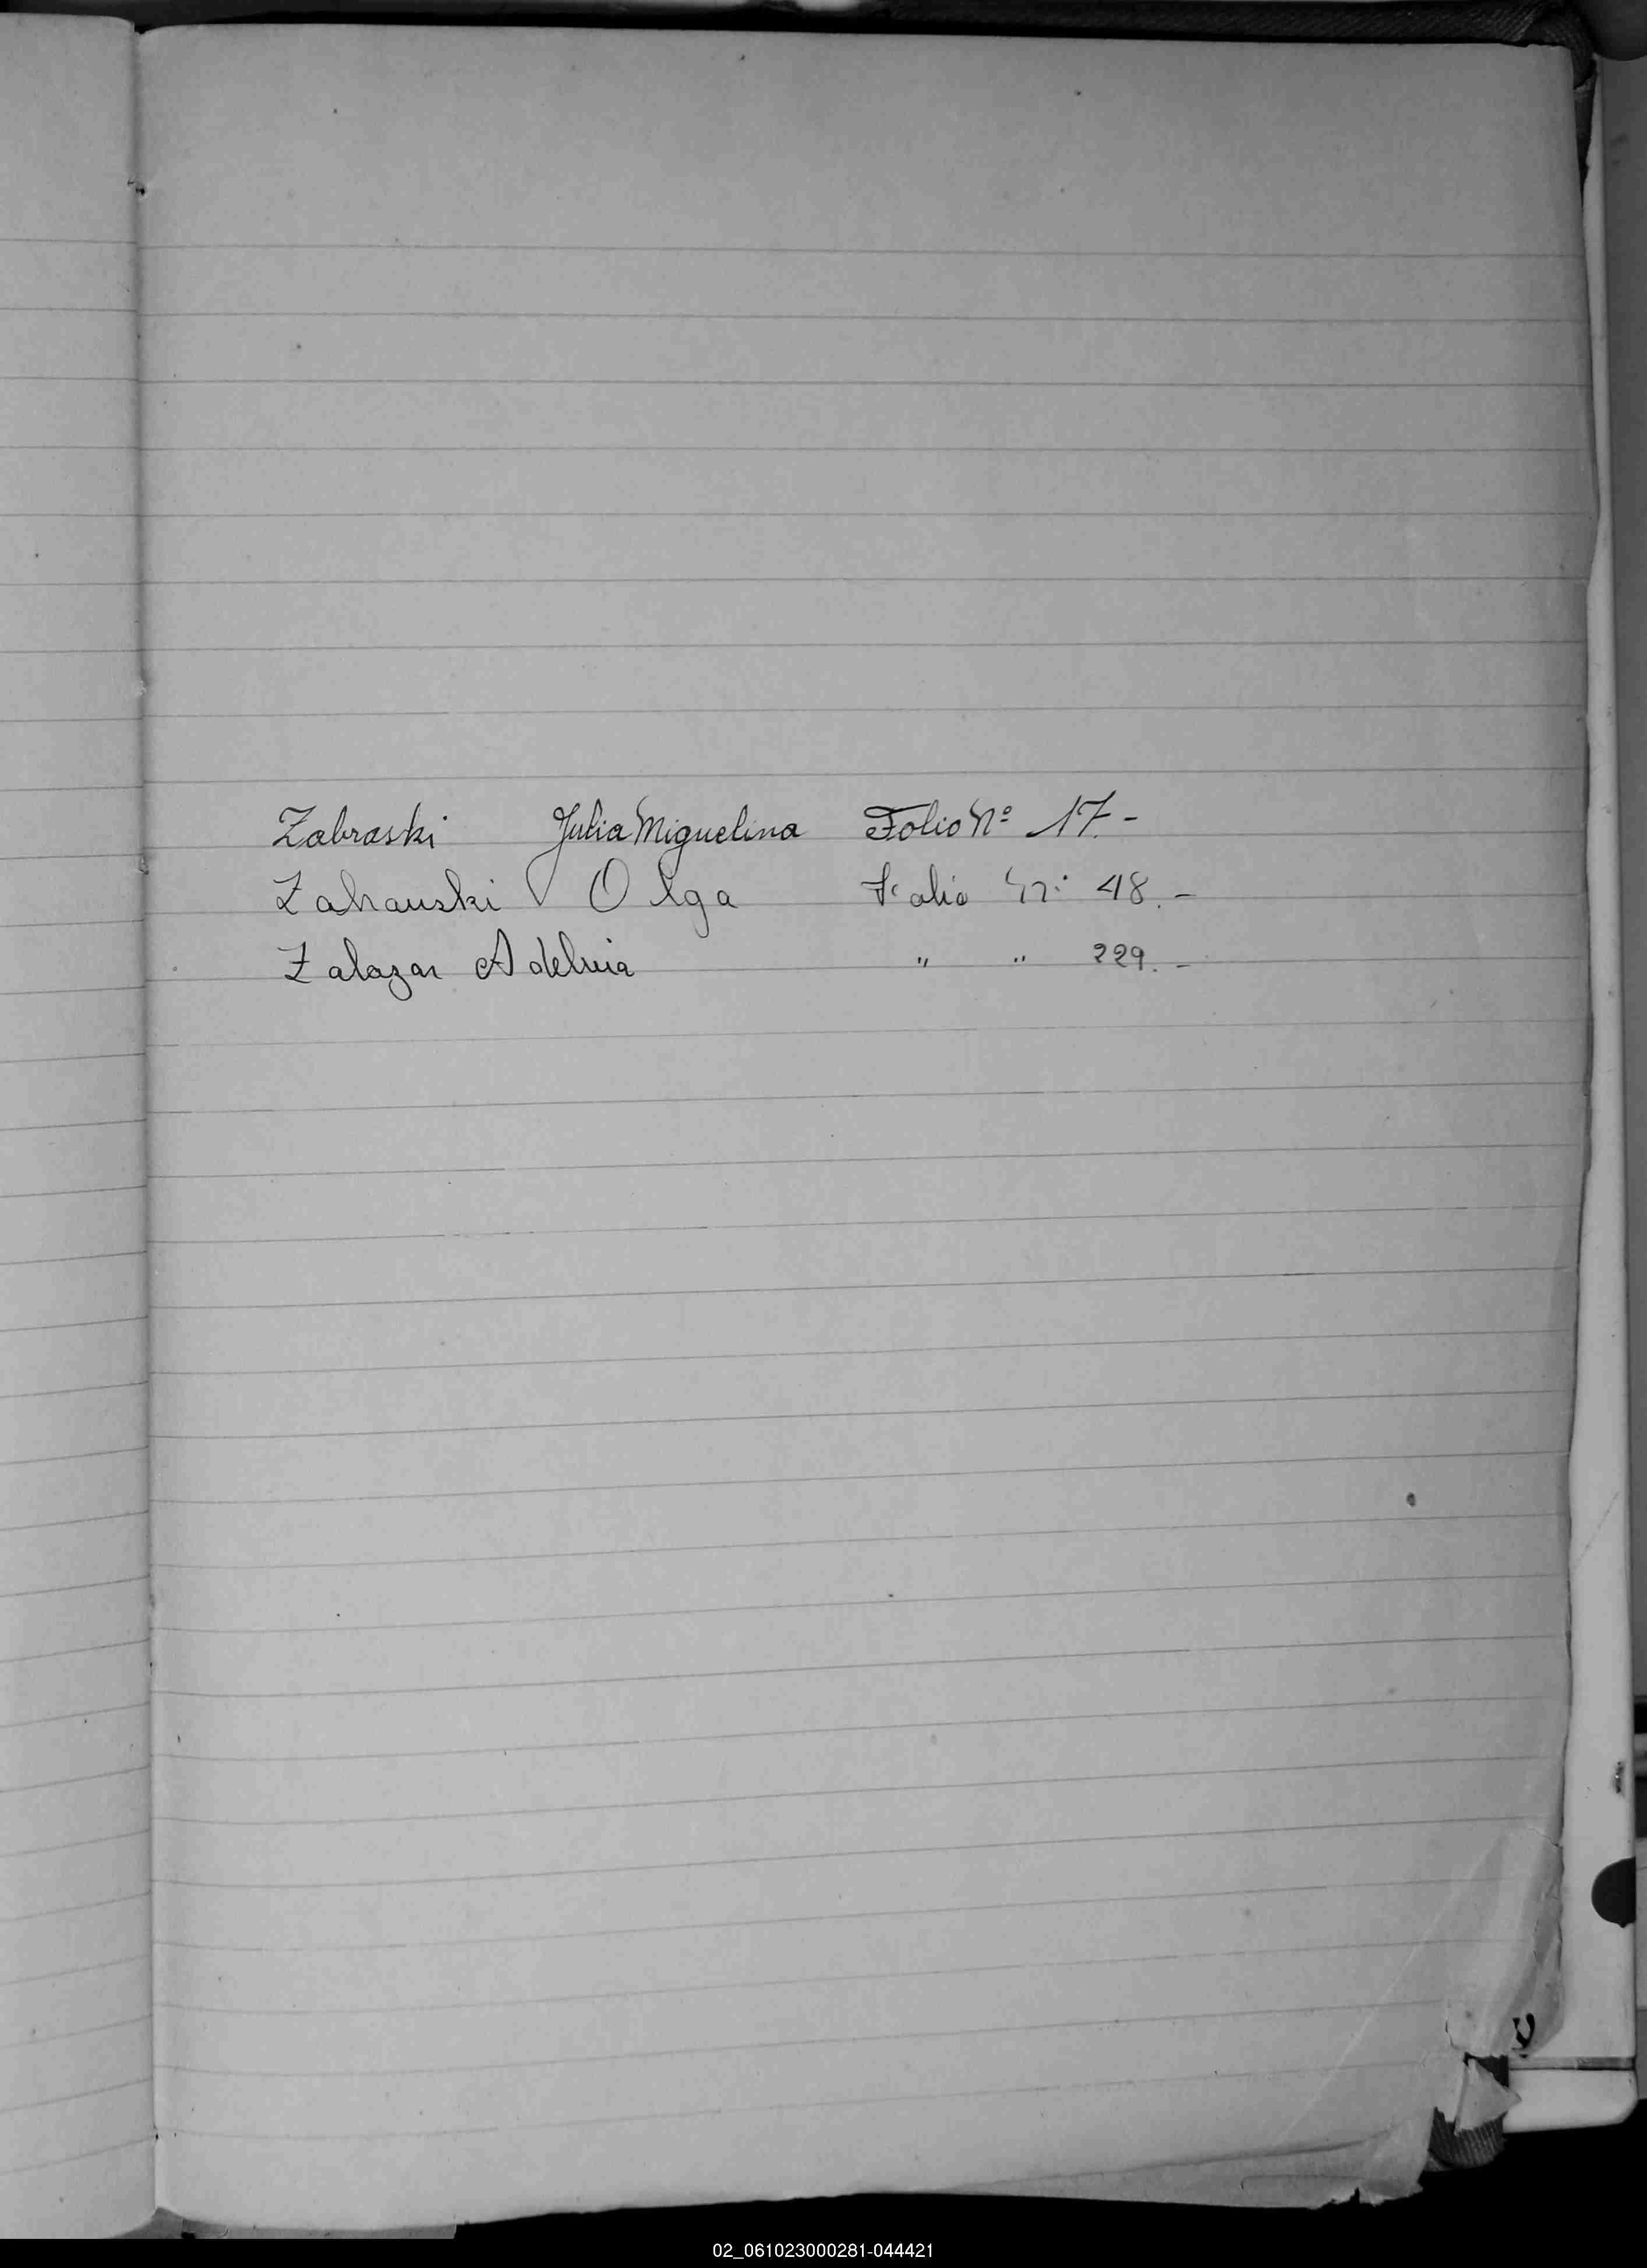 Zabraski Julia Miguelina Folio Nº 17.-
Zahauski Olga Folio Nº 48.-
Zalazar Adelma " " 229.-
02_061023000281-044421